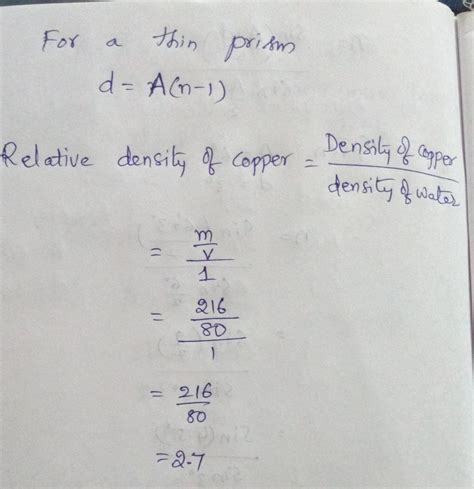 For a thin prism
d = A(n-1)
Relative density of copper = Density of copper / density of water
= m/v / 1
= 216/80 / 1
= 216/80
= 2.7